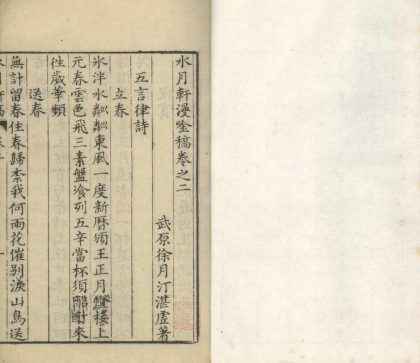 水月軒漫唫稿卷之二
武原徐月汀湛虛著
五言律詩
立春
氷泮水粼粼東風一度新曆頒王正月釐樓上
元春雲色飛三素盤飱列五辛當杯須酩酊來
徃歲華頻
送春
無計留春住春歸柰我何雨花催別淚山鳥送